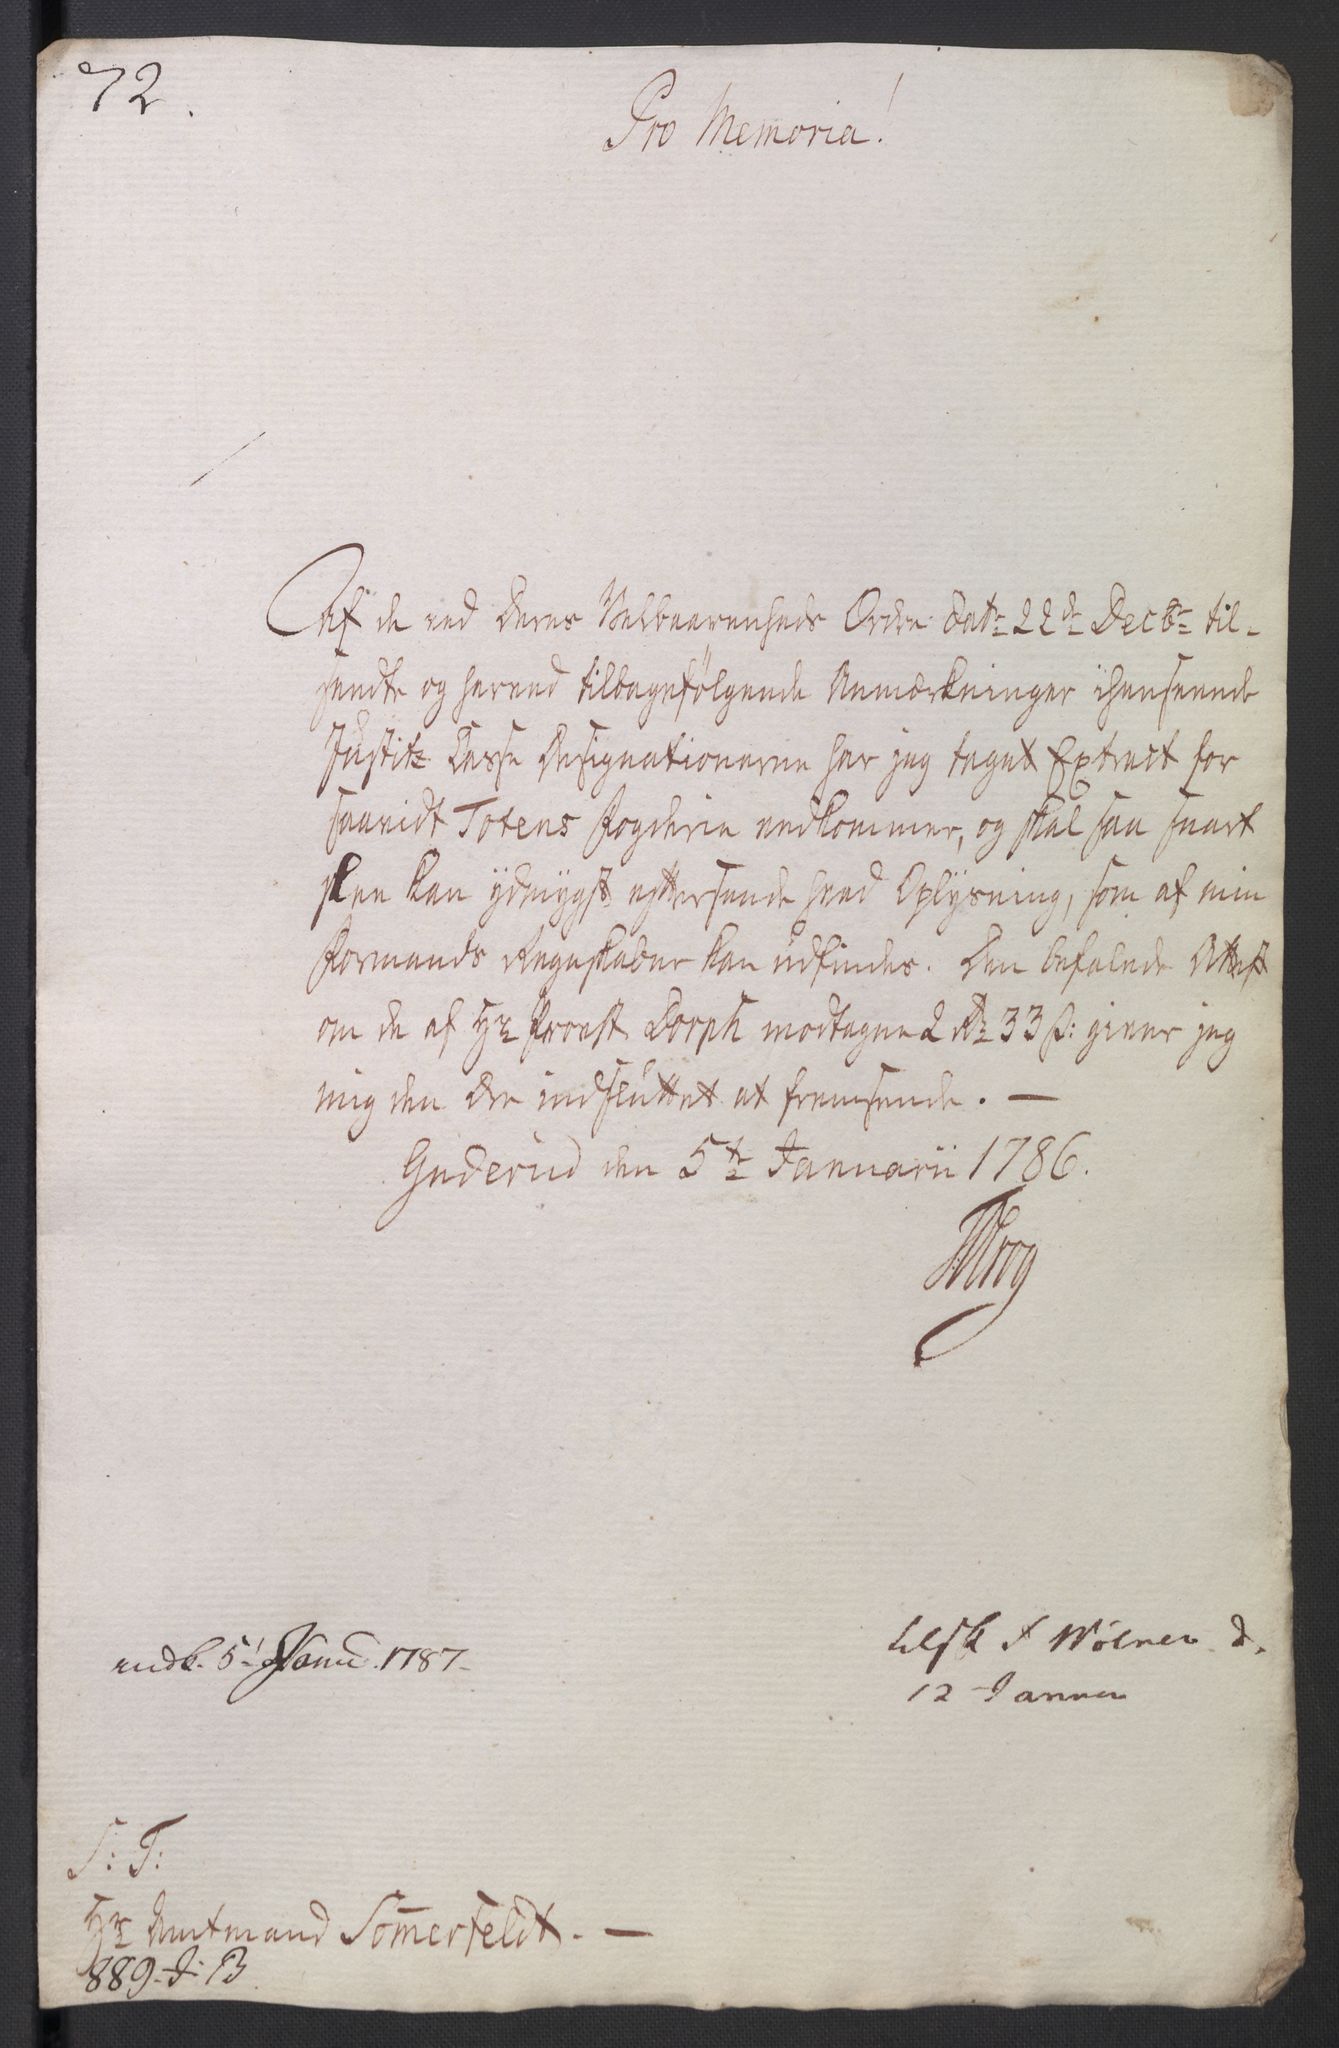 72.
Pro Memoria!
Af de ved Deres Velbaarenheds Ordre dat: 22de Decbr til-
sendte og herved tilbagefølgende Anmærkninger ihenseende
Justitz Casse Designationerne har jeg taget Extract for
saavidt Totens Fogderie vedkommer, og skal saa snart
skee kan ydmygst eftersende hvad Oplysning, som af min
Formands Regnskaber kan udfindes. Den befalede Attest
om de af Hr Provst Dorph modtagne 2 rdr 33 s: giver jeg
mig den Ære indsluttet at fremsende. —
Gaderud den 5te Januarii 1786.
indk. 5' Janu 1787.
12 Januer
S: T:
Hr Amtmand Somerfeldt. —
889. J: B